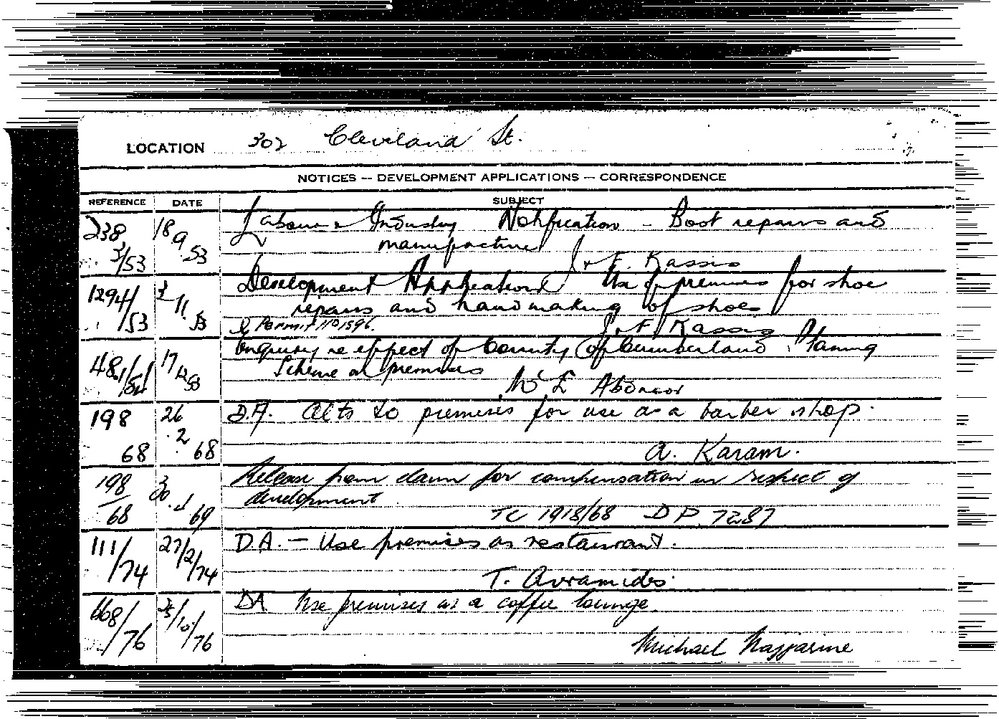 LOCATION 302 Cleveland St.
NOTICES — DEVELOPMENT APPLICATIONS — CORRESPONDENCE
REFERENCE DATE SUBJECT
238 18 9 53 Labour & Industry Notification - Boot repairs and
/53 manufacture
J & F. Kassis
1294/53 11 53 Development Application Use of premises for shoe
repairs and hand making of shoes
Permit No 1596. J & F Kassis
481/ 17 12 53 Enquiry re effect of County of Cumberland Planing
Scheme on premises
198 68 26 2 68 D.A. Alts to premises for use as a barber shop.
A. Karam.
198/68 69 Release from claim for compensation in respect of
development
TC 1918/68 DP 7287
111/74 27/2/74 D.A. — Use premises as restaurant.
T. Avramides.
668/76 /10/76 DA Use premises as a coffee lounge
Michael Nazzarine